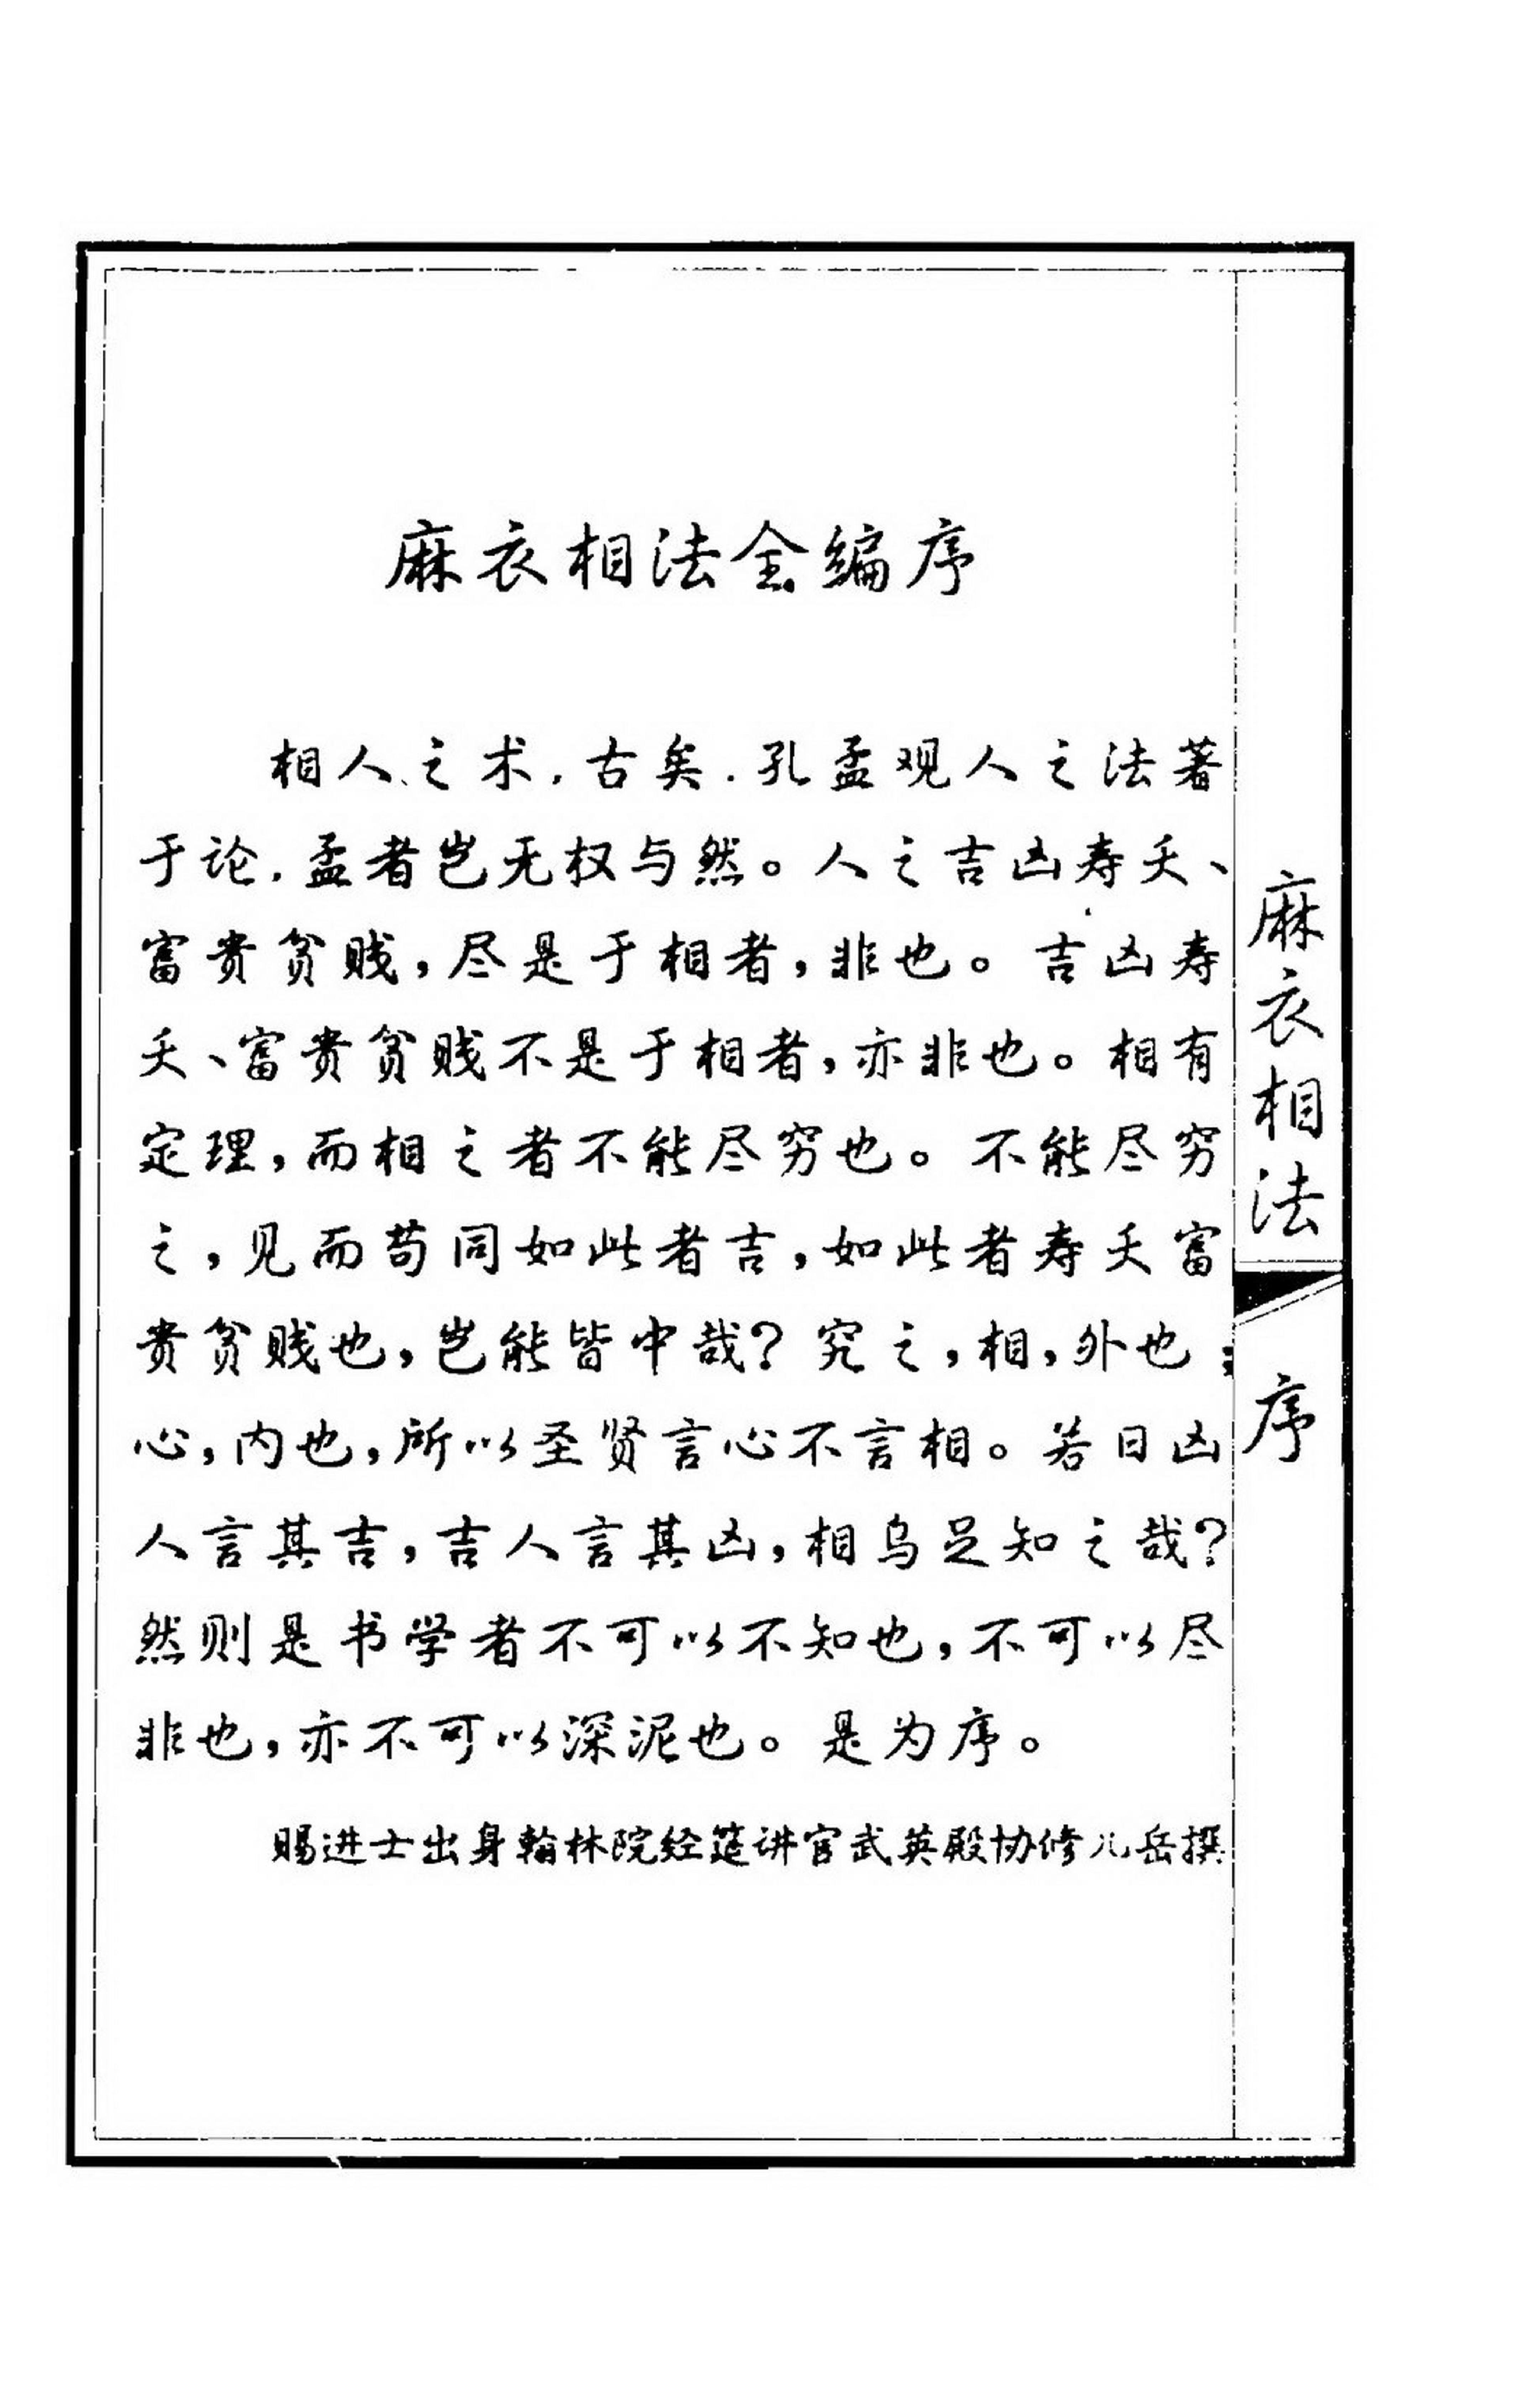 麻衣相法全编序
相人之术，古矣．孔孟观人之法著
于论．孟者岂无权与然。人之吉凶寿夭、
富贵贫贱，尽是于相者，非也。吉凶寿
夭、富贵贫贱不是于相者，亦非也。相有
定理，而相之者不能尽穷也。不能尽穷
之，见而苟同如此者吉，如此者寿夭富
贵贫贱也，岂能皆中哉？究之，相，外也；
心，内也，所以圣贤言心不言相。若日凶
人言其吉，吉人言其凶，相乌足知之哉？
然则是书学者不可以不知也，不可以尽
非也，亦不可以深泥也。是为序。
赐进士出身翰林院经筵讲官武英殿协修儿岳撰
麻衣相法
序